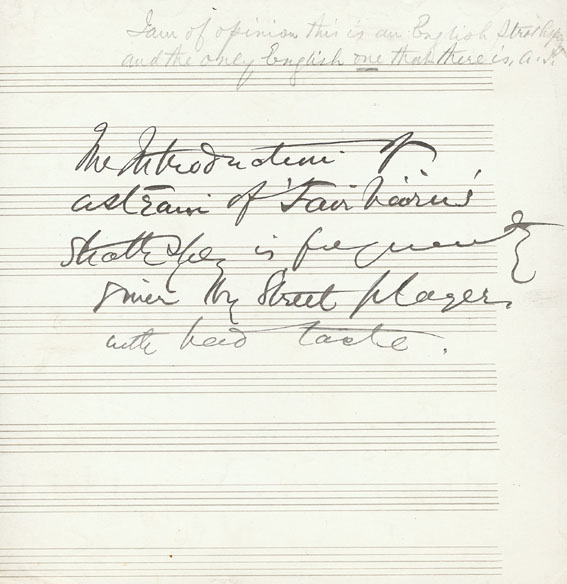 I am of opinion this is an English Strathspey
and the only English one that there is, A.S.
The Introduction of
a strain of 'Fairbairn's'
Strathspey is frequently
given by Street players
with bad taste.